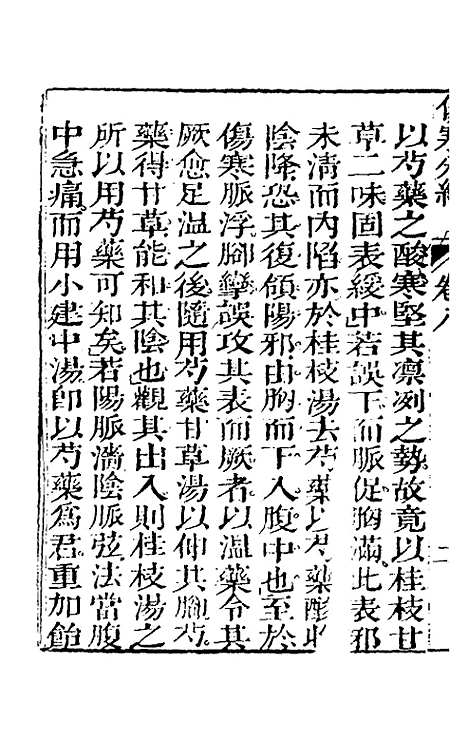 傷寒分經 卷八 二
以芍藥之酸寒堅其凛冽之勢故竟以桂枝甘
草二味固表緩中若誤下而脈促胸滿此表邪
未清而內陷亦於桂枝湯去芍藥以芍藥酸收
陰降恐其復領陽邪由胸而下入腹中也至於
傷寒脈浮腳攣誤攻其表而厥者以溫藥令其
厥愈足溫之後隨用芍藥甘草湯以伸其腳芍
藥得甘草能和其陰也觀其出入則桂枝湯之
所以用芍藥可知矣若陽脈濇陰脈弦法當腹
中急痛而用小建中湯卽以芍藥為君重加飴